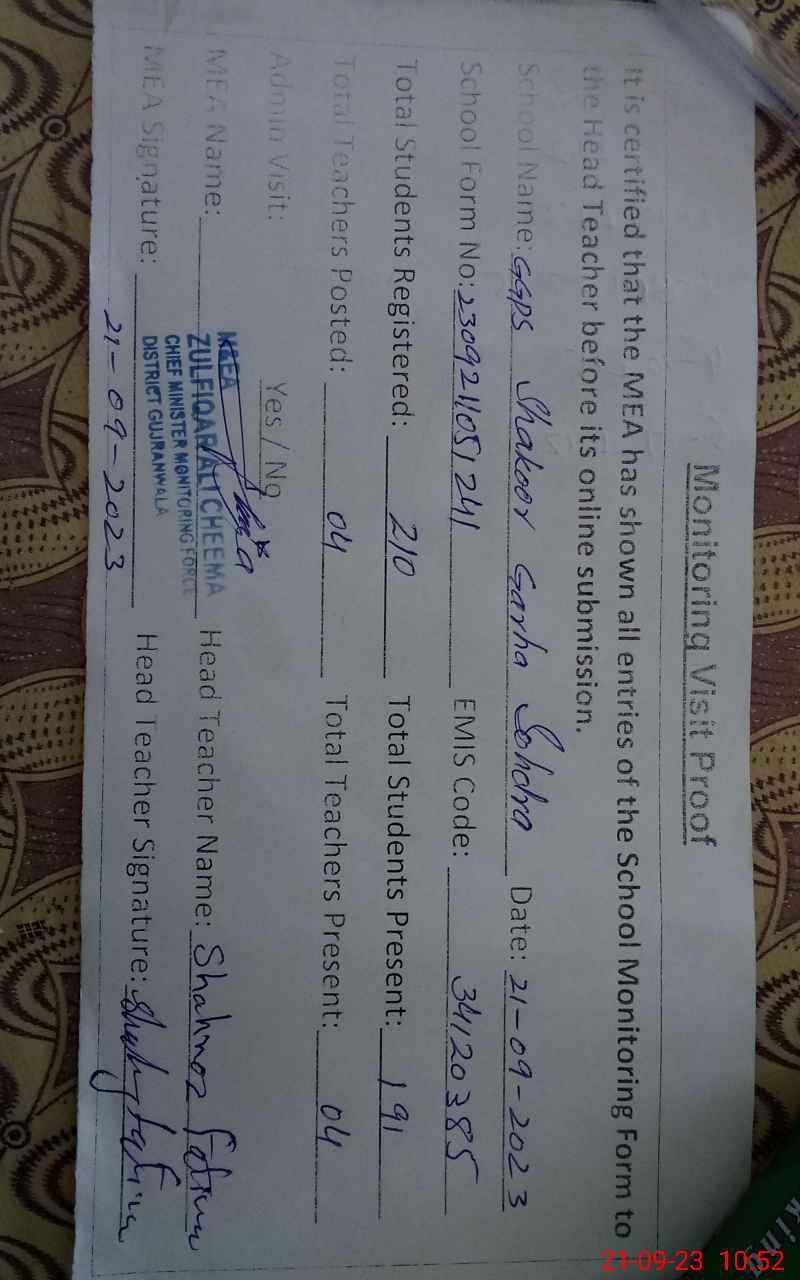 Monitoring Visit Proof
It is certified that the MEA has shown all entries of the School Monitoring Form to
the Head Teacher before its online submission.
School Name: GGPS Shakoor Garha Sohdra Date: 21-09-2023
School Form No: 2309211051241 EMIS Code: 34120385
Total Students Registered: 210 Total Students Present: 191
Total Teachers Posted: 04 Total Teachers Present: 04
Admin Visit: Yes / No
MEA Name: Head Teacher Name: Shahnaz Fatima
M&EA
ZULFIQAR ALI CHEEMA
CHIEF MINISTER MONITORING FORCE
DISTRICT GUJRANWALA
MEA Signature: Head Teacher Signature:
21-09-2023
21-09-23 10:52